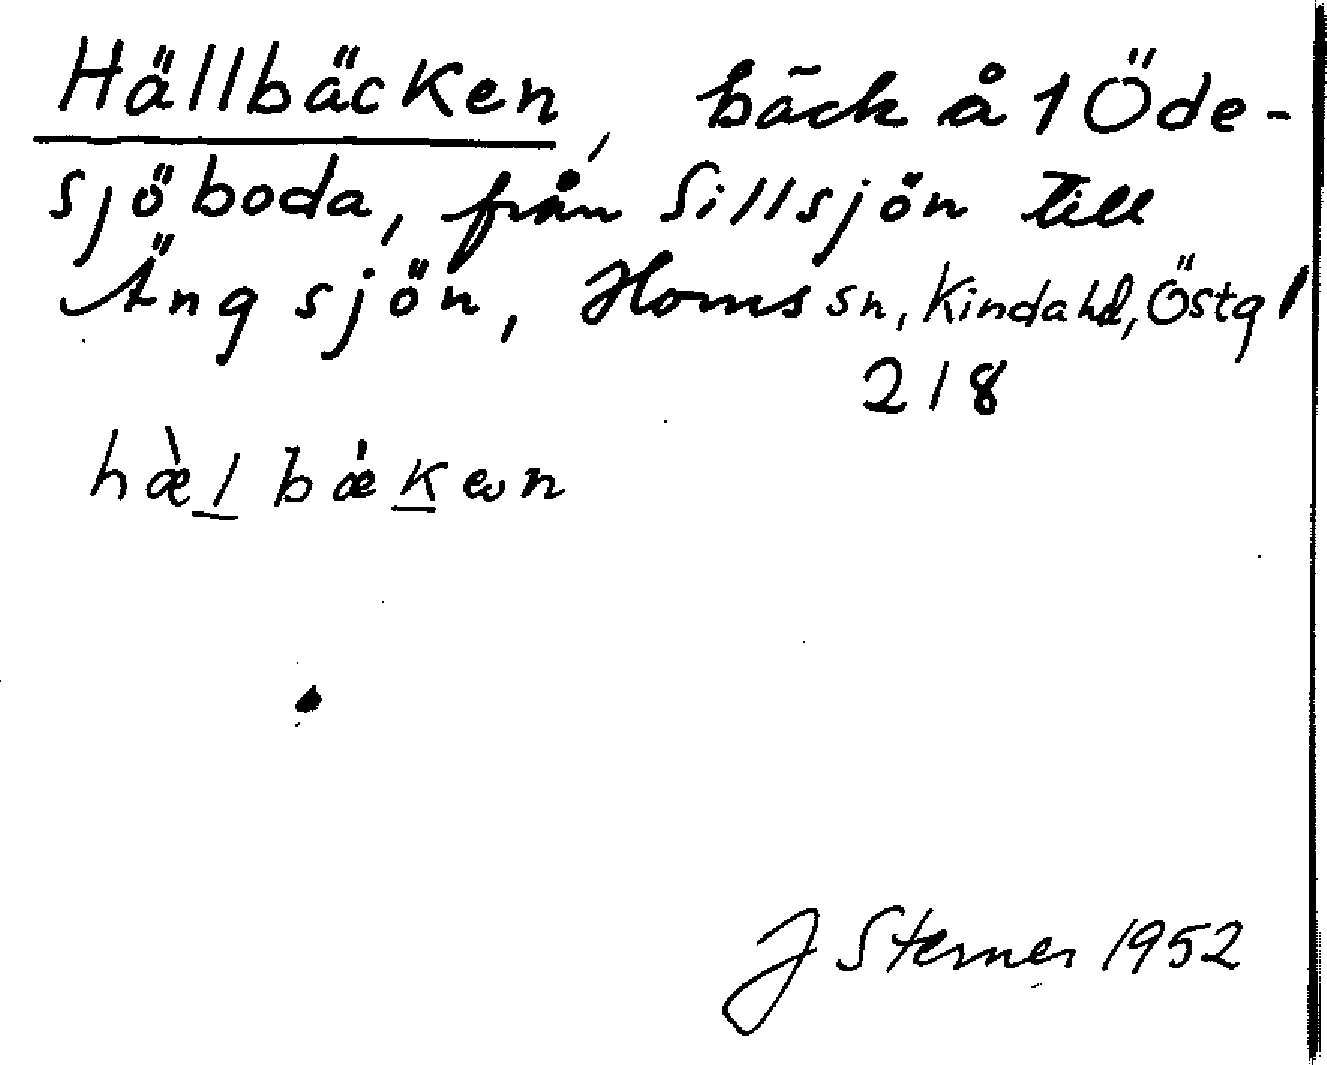 Hällbäcken, bäck å 1 Öde-
sjöboda, från Sillsjön till
Ängsjön, Horns sn, Kinda hd, Östgl
218
hæ̀l bæ̍ken
J Sterner 1952